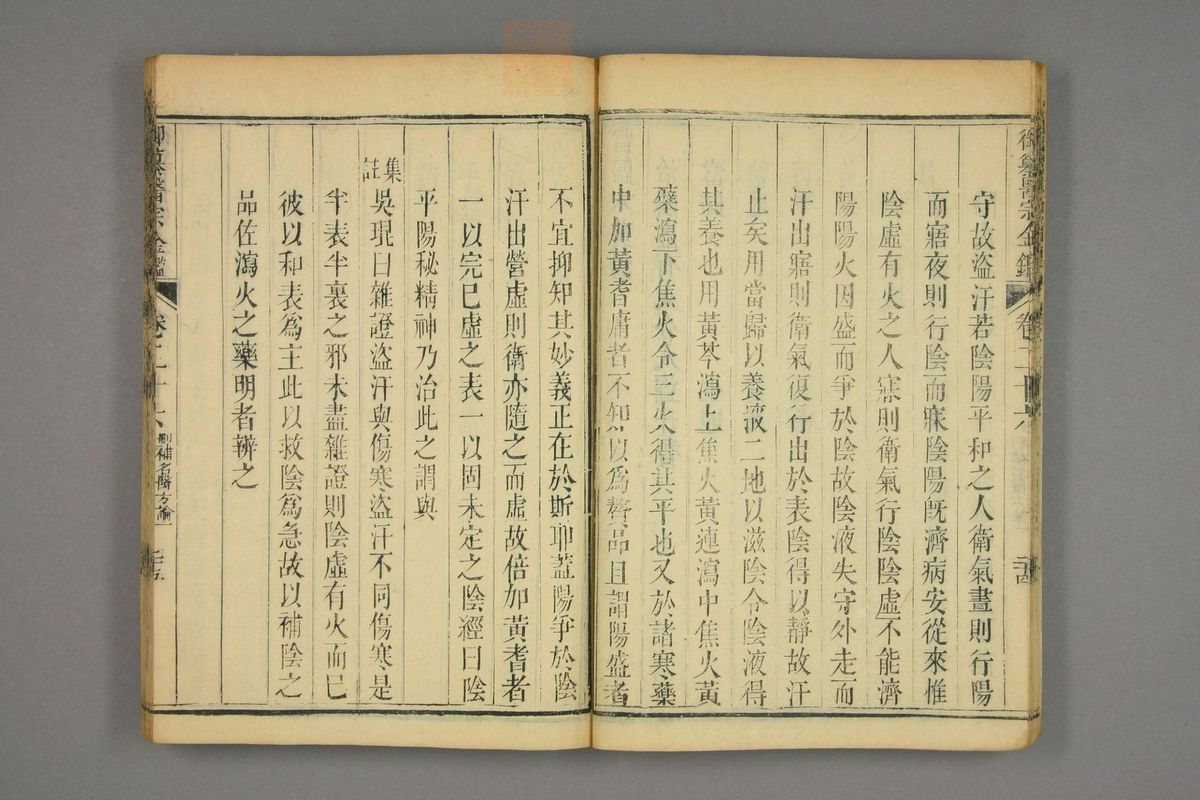 御纂醫宗金鑑 卷二十六 二十四
守故盜汗若陰陽平和之人衛氣晝則行陽
而寤夜則行陰而寐陰陽既濟病安從來惟
陰虛有火之人寐則衛氣行陰陰虛不能濟
陽陽火因盛而爭於陰故陰液失守外走而
汗出寤則衛氣復行出於表陰得以靜故汗
止矣用當歸以養液二地以滋陰令陰液得
其養也用黃芩瀉上焦火黃連瀉中焦火黃
蘗瀉下焦火令三火得其平也又於諸寒藥
中加黃耆庸者不知以為贅品且謂陽盛者
不宜抑知其妙義正在於斯耶蓋陽爭於陰
汗出營虛則衛亦隨之而虛故倍加黃耆者
一以完已虛之表一以固未定之陰經曰陰
平陽秘精神乃治此之謂與
集註
吳琨曰雜證盜汗與傷寒盜汗不同傷寒是
半表半裏之邪未盡雜證則陰虛有火而已
彼以和表為主此以救陰為急故以補陰之
品佐瀉火之藥明者辨之
御纂醫宗金鑑 卷二十六 刪補名醫方論 二十五